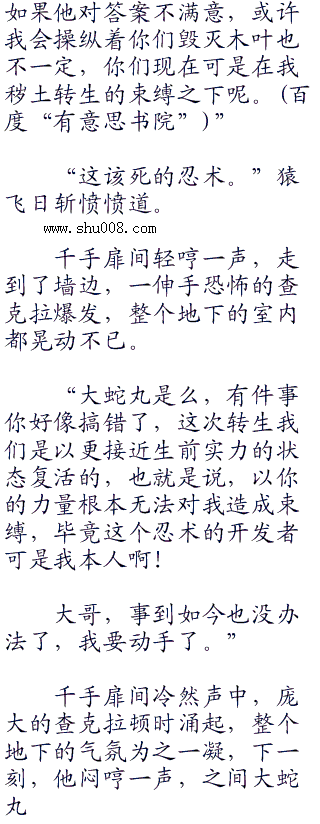 如果他对答案不满意，或许
我会操纵着你们毁灭木叶也
不一定，你们现在可是在我
秽土转生的束缚之下呢。(百
度“有意思书院”)”
“这该死的忍术。”猿
飞日斩愤愤道。
www.shu008.com
千手扉间轻哼一声，走
到了墙边，一伸手恐怖的查
克拉爆发，整个地下的室内
都晃动不已。
“大蛇丸是么，有件事
你好像搞错了，这次转生我
们是以更接近生前实力的状
态复活的，也就是说，以你
的力量根本无法对我造成束
缚，毕竟这个忍术的开发者
可是我本人啊!
大哥，事到如今也没办
法了，我要动手了。”
千手扉间冷然声中，庞
大的查克拉顿时涌起，整个
地下的气氛为之一凝，下一
刻，他闷哼一声，之间大蛇
丸